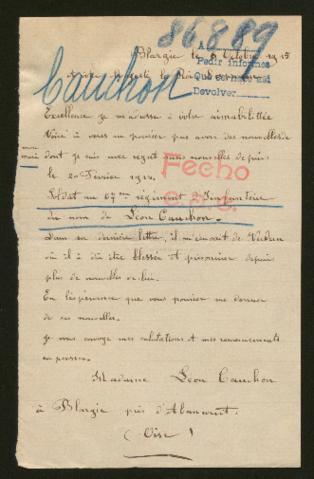 86.889
Blargie le 5 Octobre 1915
A
Pedir informes
Devolver
Cauchon
Excellence je m'adresse à votre aimabilitée
Voir à vous me pouviez pas avoir des nouvelles de
mon mari
dont je suis sans nouvelles depuis
le 20 Février 1915.
Fecho
Soldat au 67me régiment d'Infanterie
du nom de Léon Cauchon.
Dans sa dernière lettre, il m'écrivait de Verdun
où il a dû être blessée et prisonnier depuis
plus de nouvelles de lui.
En l'espérance que vous pouviez me donner
de ses nouvelles.
Je vous envoye mes salutations et mes remerciements
Madame Léon Cauchon
à Blargie près d'Abancourt.
(Oise)